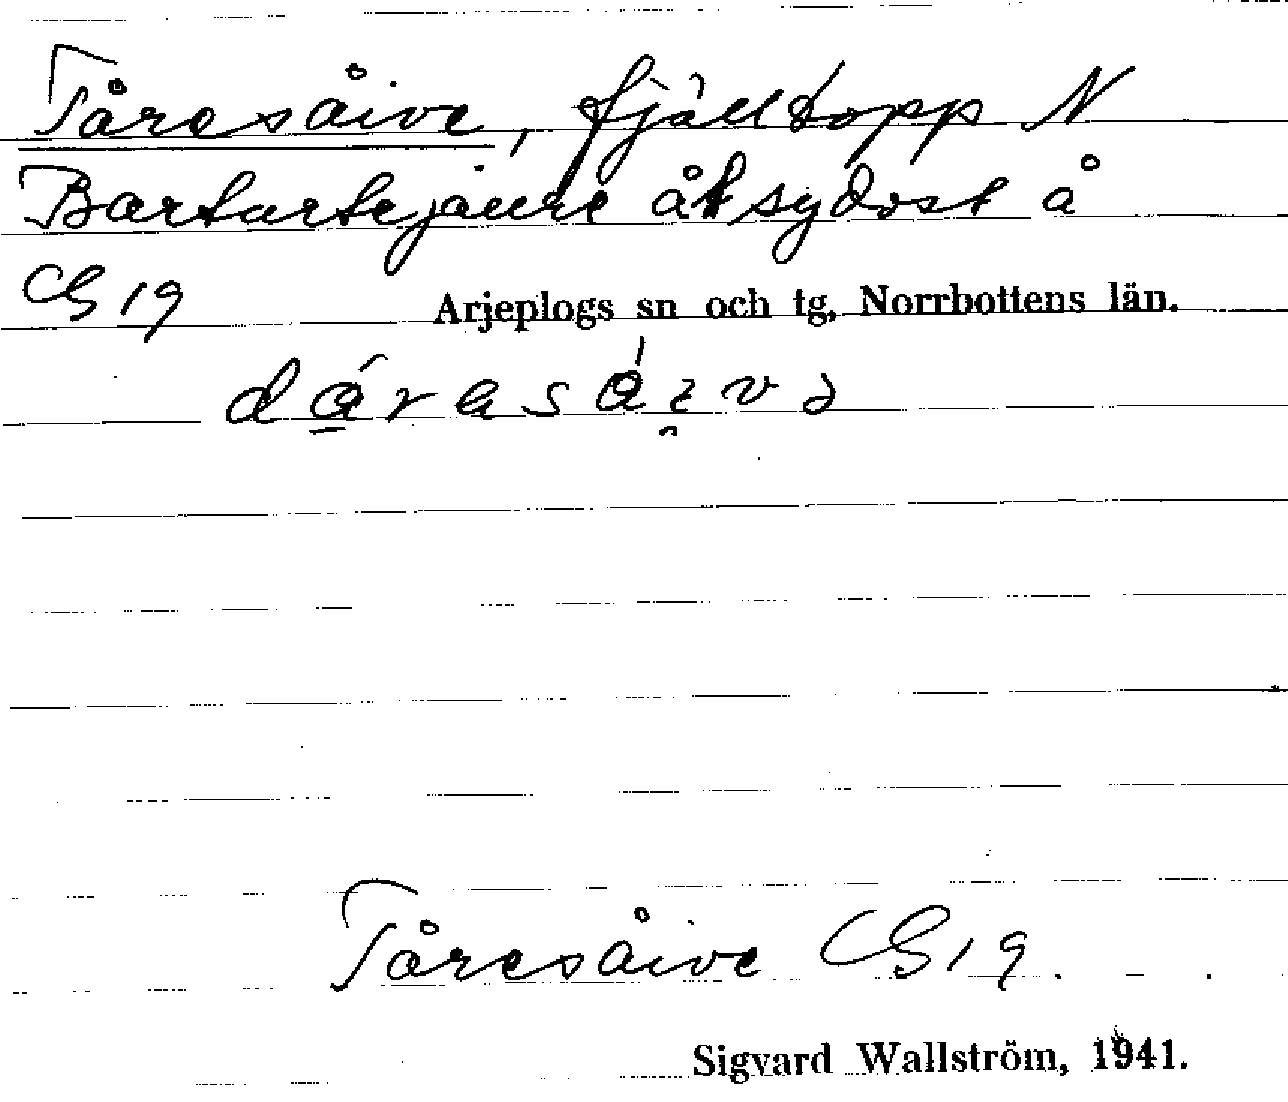 Tåresåive, fjälltopp N
Bartartejaure åt sydost å
CG 19 Arjeplogs sn och tg, Norrbottens län.
Tåresåive CG 19.
Sigvard Wallström, 1941.